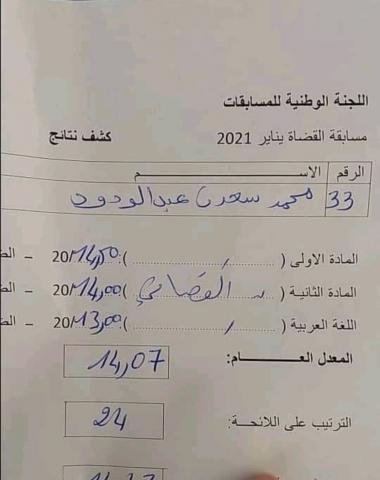 اللجنة الوطنية للمسابقات
مسابقة القضاة يناير 2021 كشف نتائج
الرقم الاســـم
33 محمد سعدن عبدالودود
المادة الاولى ( ) : 14,50/20 –
المادة الثانية ( القضائي ) : 14,00/20 –
اللغة العربية ( ) : 13,00/20 –
المعدل العـــــام: 14,07
الترتيب على اللائحـــة: 24